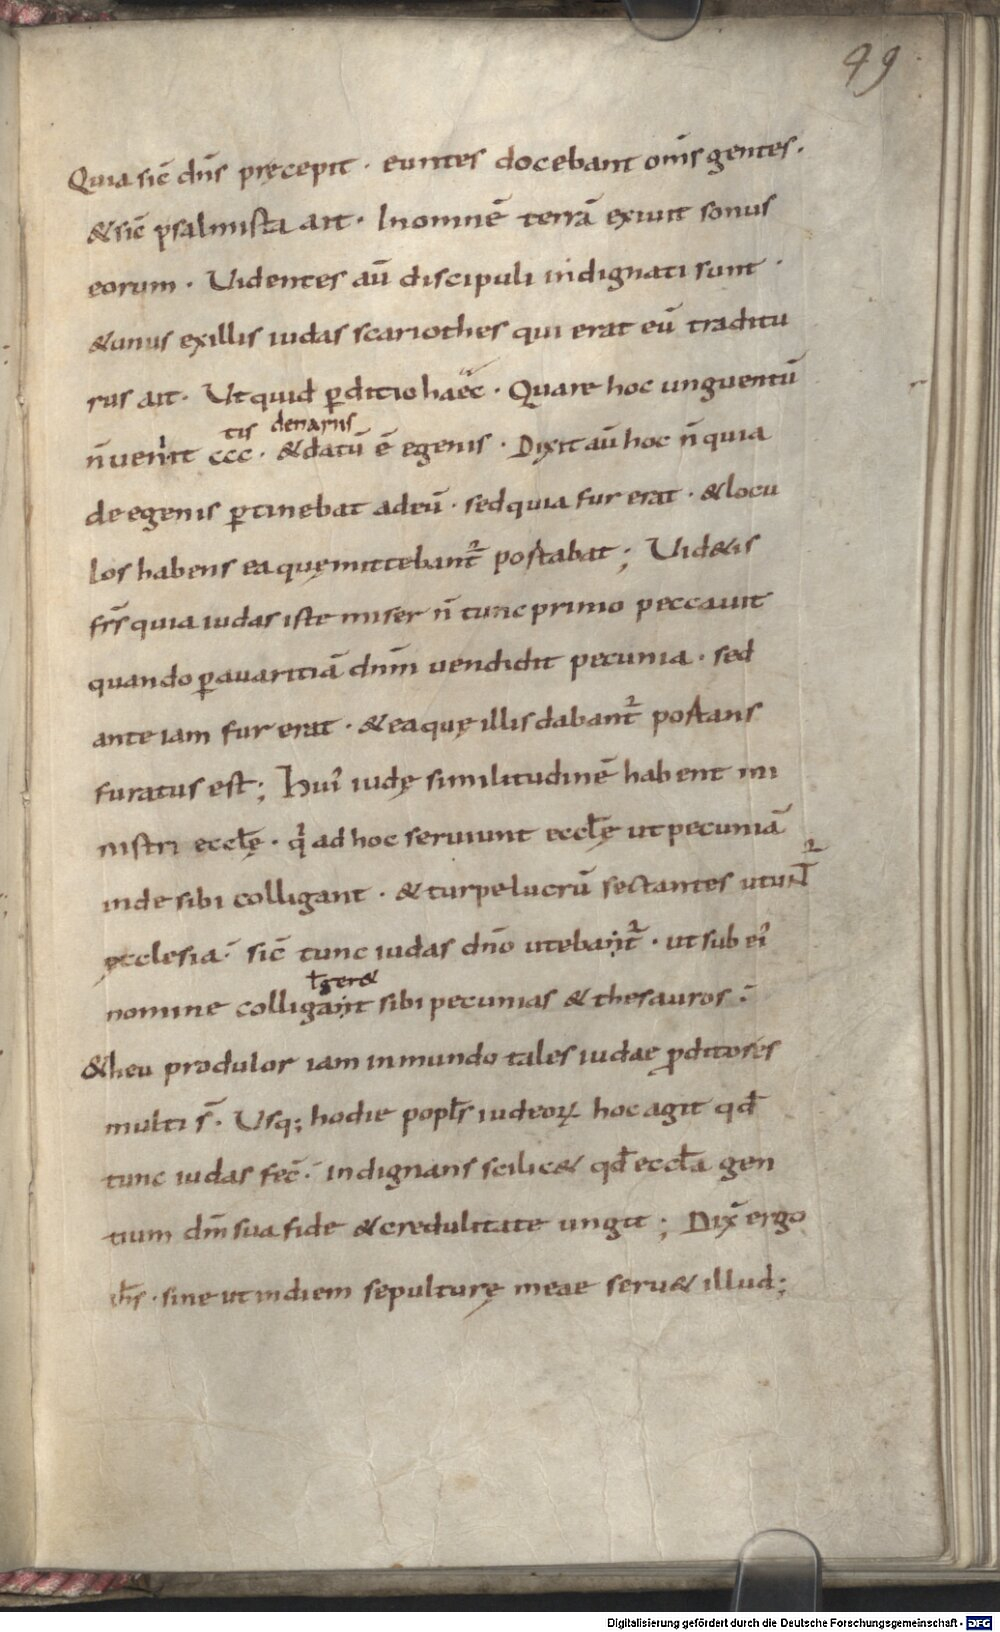 99
Quia sic̄ dn̄s pręcepit · euntes docebant om̄s gentes ·
& sic̄ psalmista ait · In omnē terrā exiuit sonus
eorum · Uidentes aū discipuli indignati sunt ·
& unus ex illis iudas scariothes qui erat eū traditu
rus ait · Ut quid p̱ditio haec · Quare hoc unguentū
tis denariis
n̄ uenirit ccc · & datū ē egenis · Dixit aū hoc n̄ quia
de egenis p̱tinebat ad eū · sed quia fur erat · & locu
los habens ea quę mittebant᷑ postabat ; Uid&is
fr̄s quia iudas iste miser n̄ tunc primo peccauit
quando p̱ auaritiā dnm̄ uendidit pecunia · sed
ante iam fur erat · & ea quę illis dabant᷑ postans
furatus est ; Hui᾿ iudę similitudinē habent mi
nistri eccłę · qͥ ad hoc seruiunt eccłę ut pecuniā
inde sibi colligant · & turpe lucrū sectantes utunt᷑
ęcclesia · sic̄ tunc iudas dn̄o utebant᷑ · ut sub ei᾿
ł ger&
nomine colligant sibi pecunias & thesauros :
& heu produlor iam in mundo tales iudae p̱ditores
multi s̄ · Usq; hodie popl̄s iudeoꝝ hoc agit qd̄
tunc iudas fec̄ · indignans scilic& qd̄ eccła gen
tium dm̄ sua fide & credulitate ungit ; Dix̄ ergo
ih̄s · sine ut in diem sepulturę meae seru& illud ;
Digitalisierung gefördert durch die Deutsche Forschungsgemeinschaft - DFG